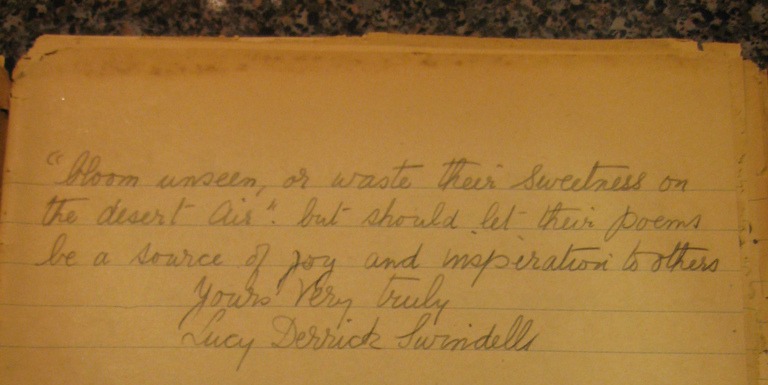 "bloom unseen, or waste their sweetness on
the desert air". but should let their poems
be a source of joy and inspiration to others
Yours Very truly
Lucy Derrick Swindells